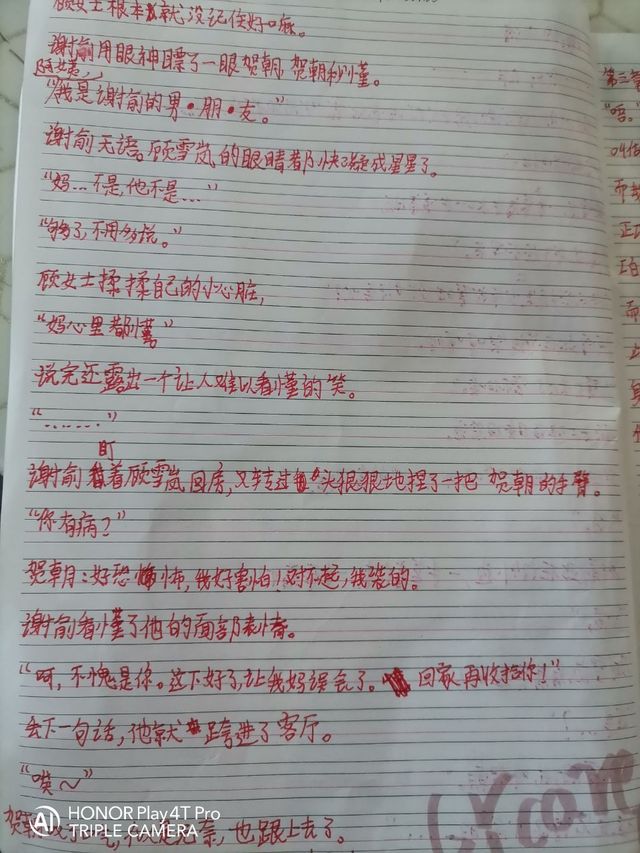 顾女士根本就没记住好嘛。
谢俞用眼神瞟了一眼贺朝,贺朝秒懂。
阿姨,
"我是谢俞的男·朋·友。"
谢俞无语。顾雪岚的眼睛都快变成星星了。
"妈…不是,他不是…"
"够了,不用多说。"
顾女士揉揉自己的小心脏,
"妈心里都懂"
说完还露出一个让人难以看懂的笑。
"……"
盯
谢俞着顾雪岚回房,又转过头狠狠地捏了一把 贺朝的手臂。
"你有病?"
贺朝:好恐怖,我好害怕!对不起,我装的。
谢俞看懂了他的面部表情。
"呵,不愧是你。这下好了,让我妈误会了。回家再收拾你!"
丢下一句话,他就跨进了客厅。
"哎~"
贺朝 也跟上去了。
第三章
"唔。
而
正
而
HONOR Play4T Pro
AI TRIPLE CAMERA